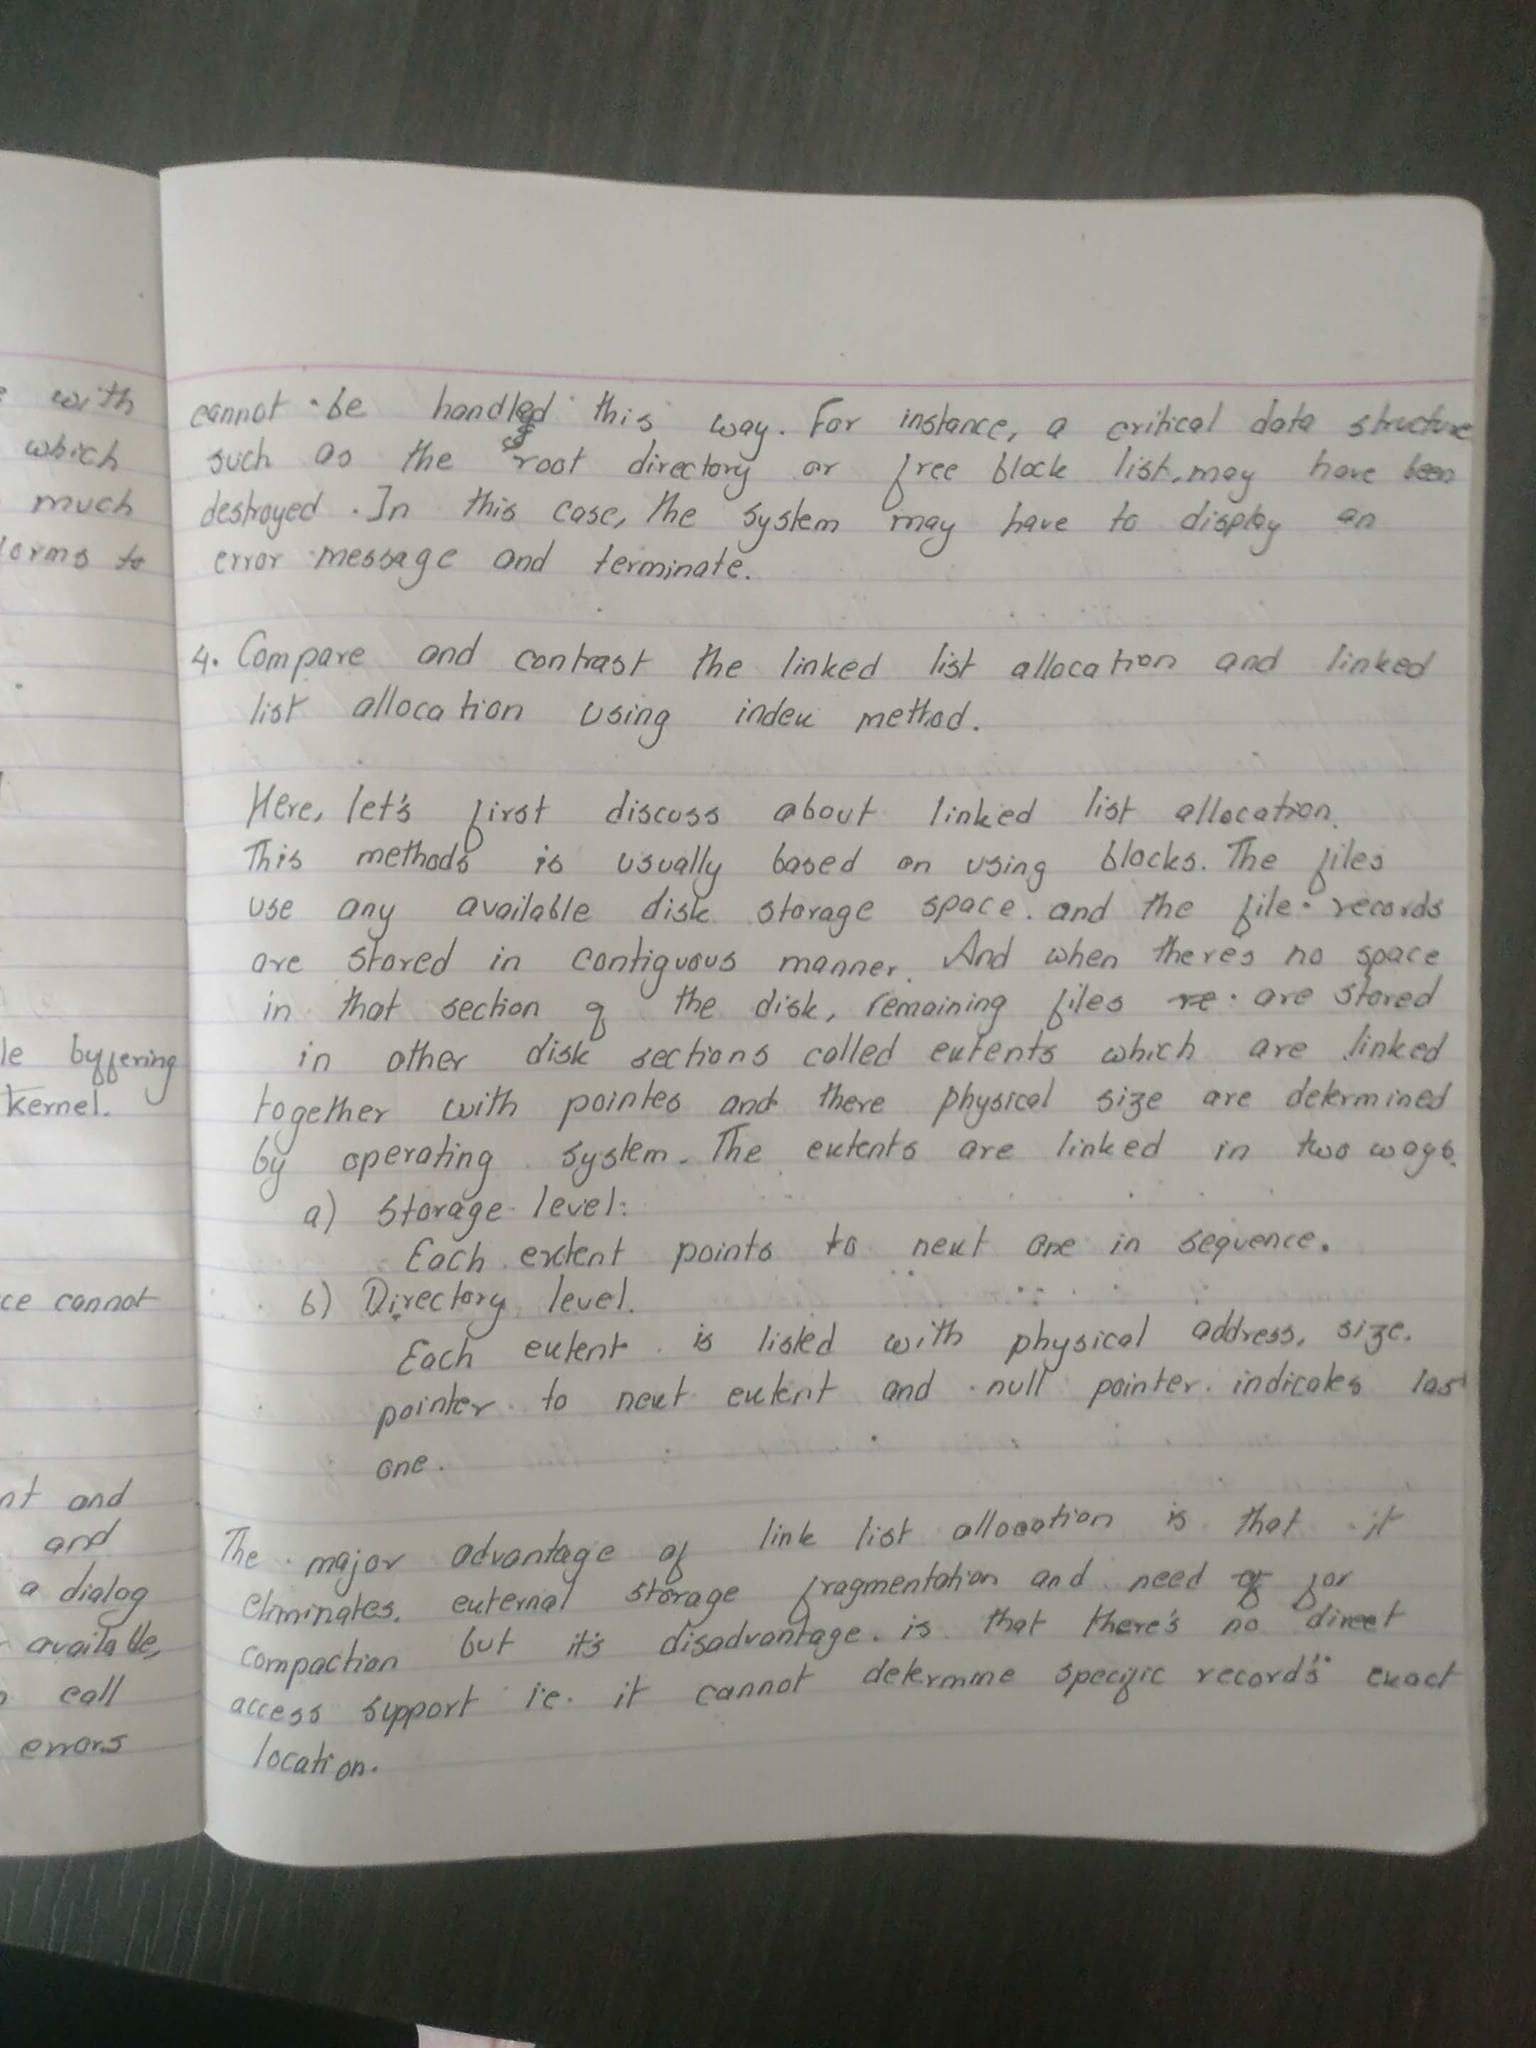 with
which
much
forms to
le buffering
kernel.
ce cannot
nt and
and
a dialog
available,
call
errors
cannot be handled this way. For instance, a critical data structure
such as the root directory or free block list, may have been
destroyed. In this case, the system may have to display an
error message and terminate.
4. Compare and contrast the linked list allocation and linked
list allocation using index method.
Here, let's first discuss about linked list allocation.
This methods is usually based on using blocks. The files
use any available disk storage space. and the file records
are stored in contiguous manner. And when there's no space
in that section of the disk, remaining files are stored
in other disk sections called extents which are linked
together with pointes and there physical size are determined
by operating system. The extents are linked in two ways.
a) Storage level:
Each extent points to next one in sequence.
b) Directory level.
Each extent is listed with physical address, size,
pointer to next extent and null pointer indicates last
one.
The major advantage of link list allocation is that it
eliminates, external storage fragmentation and need for
compaction but it's disadvantage is that there's no direct
access support i.e. it cannot determine specific record's exact
location.